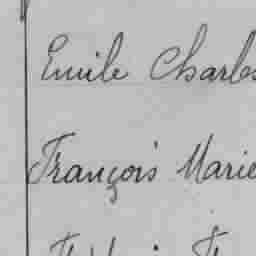 Emile Charles
François Marie